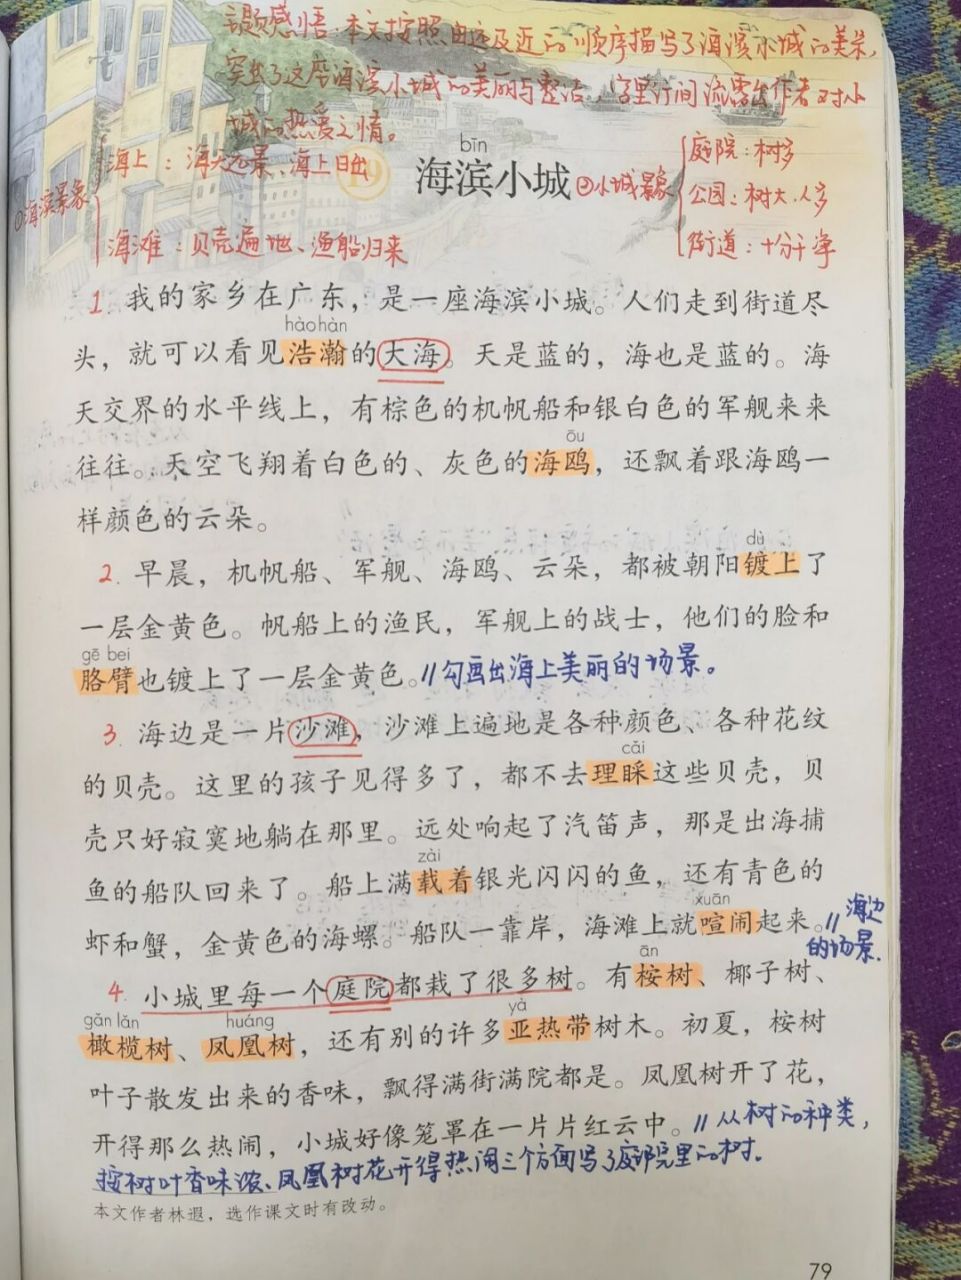 课感悟:本文按照由远及近的顺序描写了海滨小城的美景,
突出了这座海滨小城的美丽与整洁,字里行间流露出作者对小
城的热爱之情。
①海滨景象
海上:海天远景、海上日出
海滩:贝壳遍地、渔船归来
19
bīn
海滨小城
②小城景象
庭院:树多
公园:树大.人多
街道:十分干净
1. 我的家乡在广东,是一座海滨小城。人们走到街道尽
hào hàn
头,就可以看见浩瀚的大海。天是蓝的,海也是蓝的。海
天交界的水平线上,有棕色的机帆船和银白色的军舰来来
ōu
往往。天空飞翔着白色的、灰色的海鸥,还飘着跟海鸥一
样颜色的云朵。
dù
2. 早晨,机帆船、军舰、海鸥、云朵,都被朝阳镀上了
一层金黄色。帆船上的渔民,军舰上的战士,他们的脸和
gē bei
胳臂也镀上了一层金黄色。//勾画出海上美丽的场景。
3. 海边是一片沙滩,沙滩上遍地是各种颜色、各种花纹
cǎi
的贝壳。这里的孩子见得多了,都不去理睬这些贝壳,贝
壳只好寂寞地躺在那里。远处响起了汽笛声,那是出海捕
zài
鱼的船队回来了。船上满载着银光闪闪的鱼,还有青色的
xuān
虾和蟹,金黄色的海螺。船队一靠岸,海滩上就喧闹起来。//海边
的场景.
ān
4. 小城里每一个庭院都栽了很多树。有桉树、椰子树、
gǎn lǎn huáng yà
橄榄树、凤凰树,还有别的许多亚热带树木。初夏,桉树
叶子散发出来的香味,飘得满街满院都是。凤凰树开了花,
开得那么热闹,小城好像笼罩在一片片红云中。//从树的种类,
桉树叶香味浓、凤凰树花开得热闹三个方面写了庭院里的树.
本文作者林遐,选作课文时有改动。
79